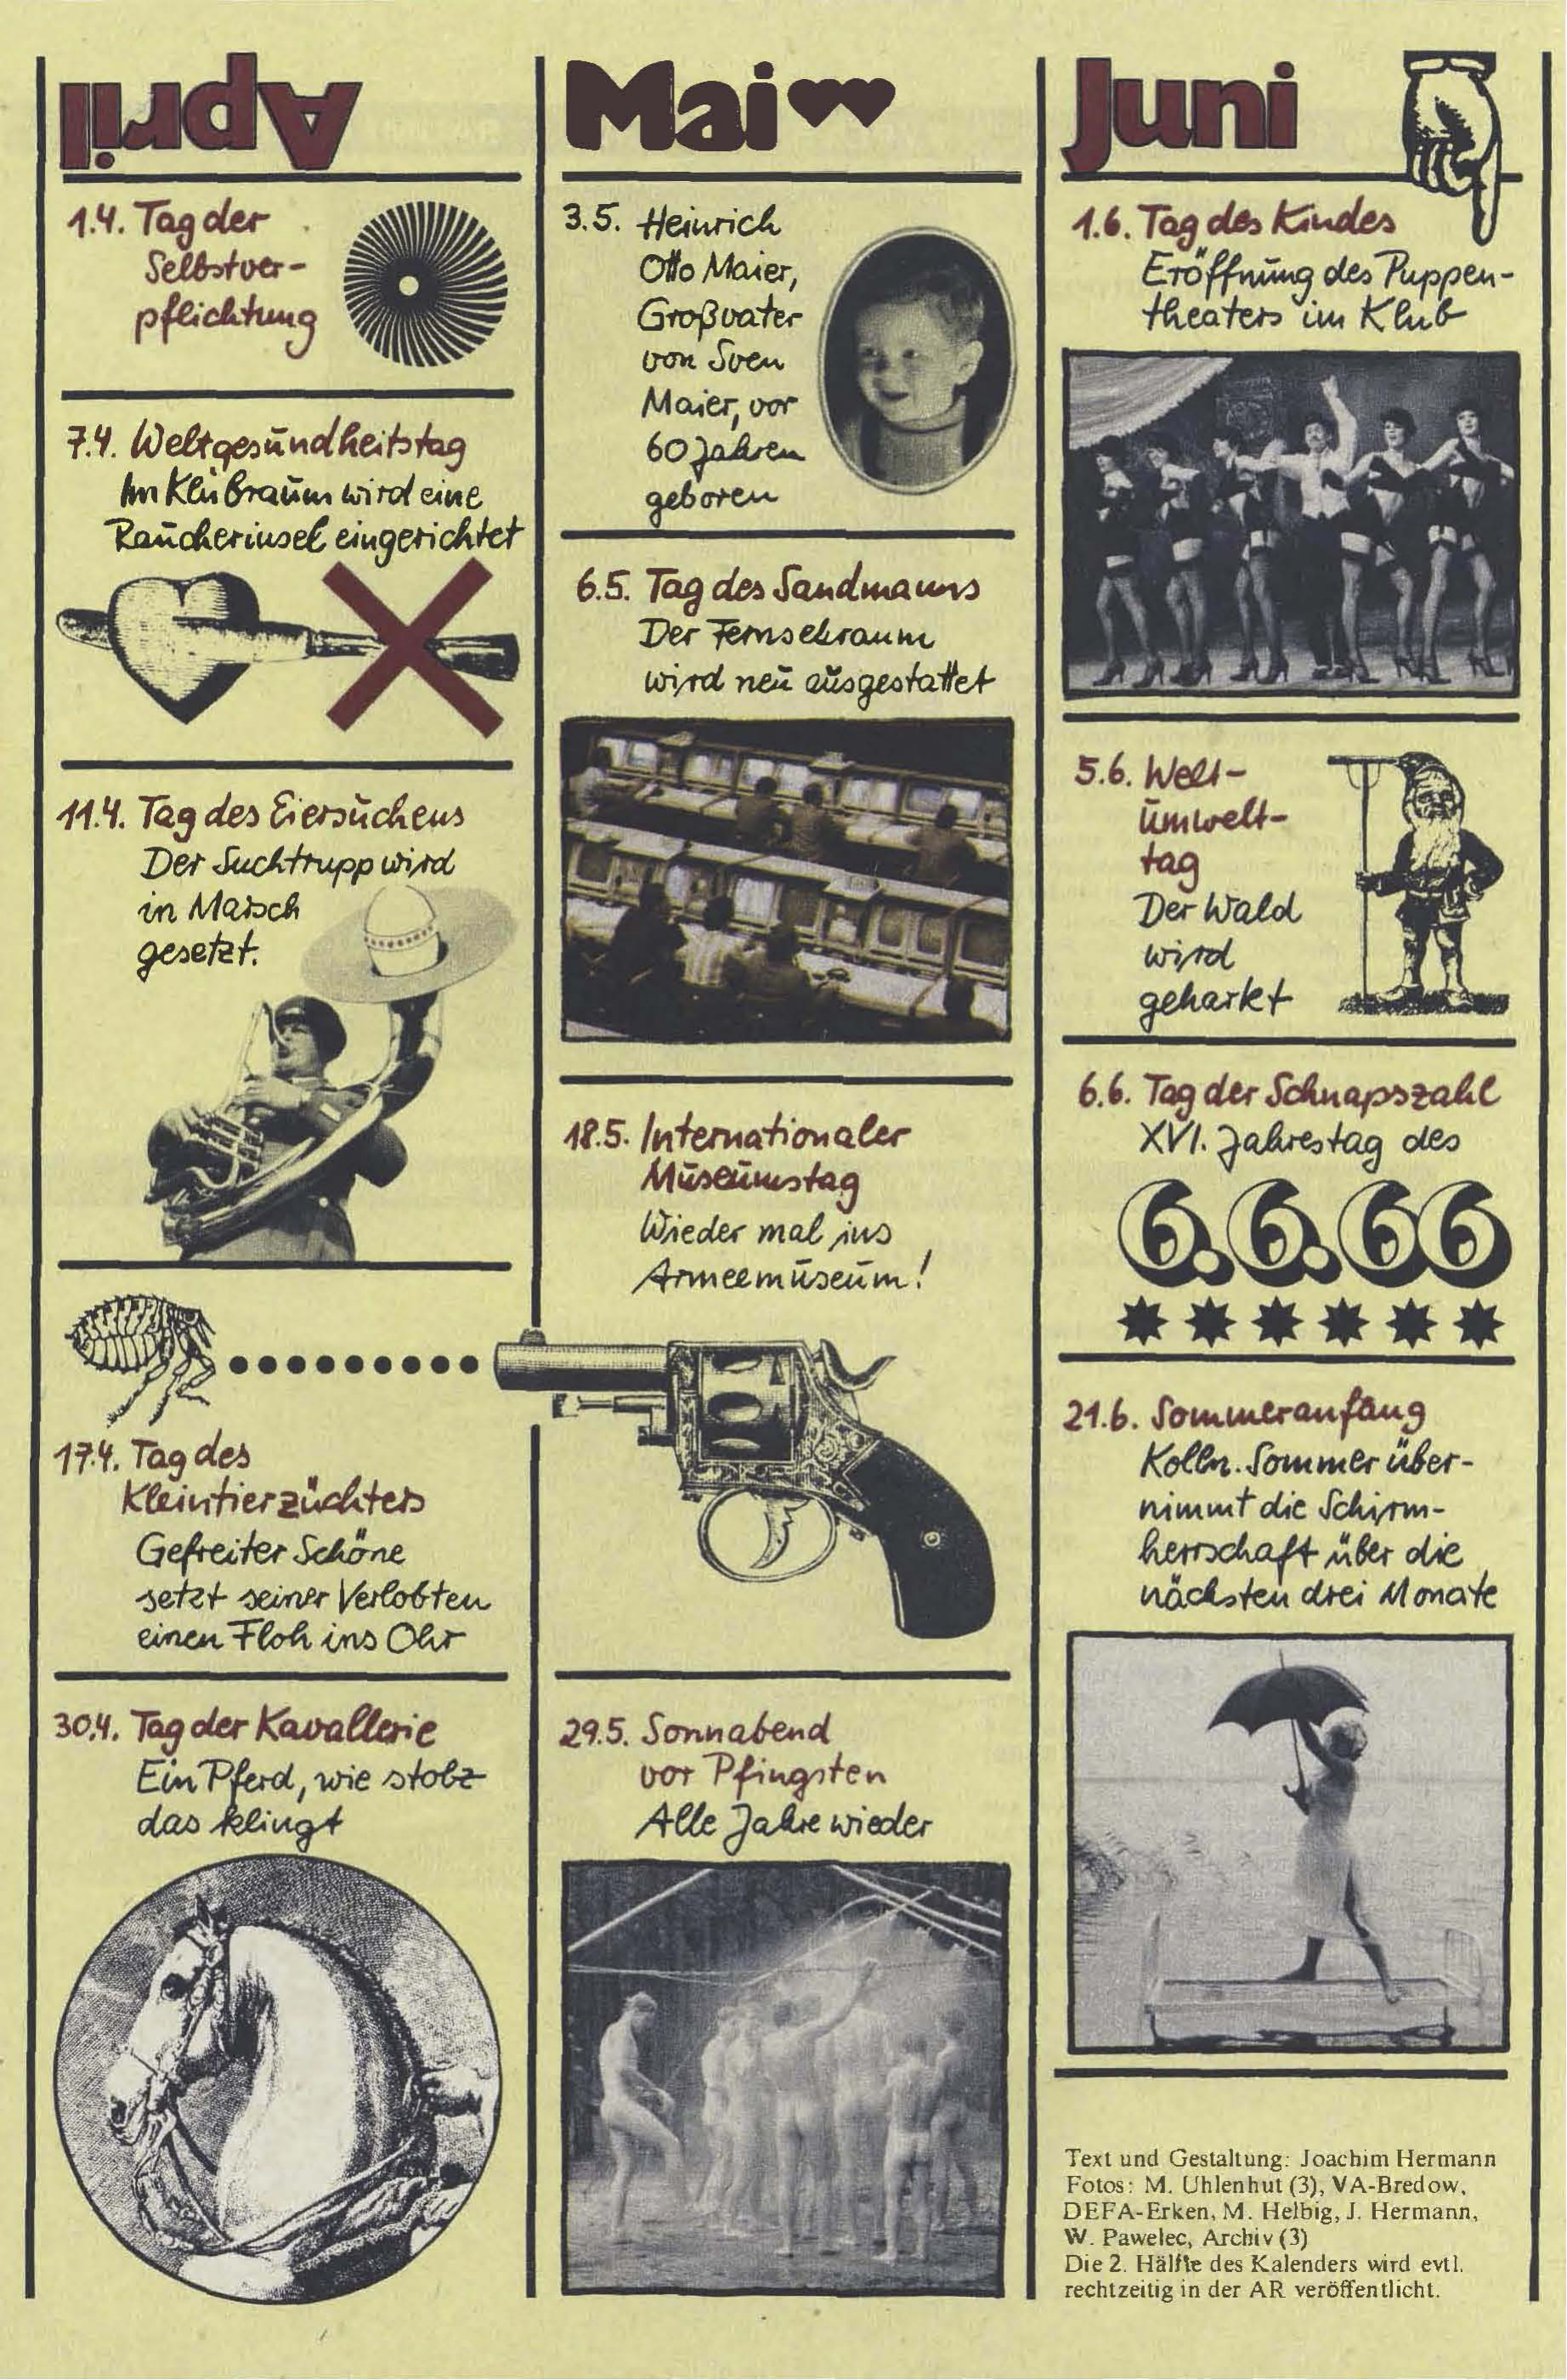 April
1.4. Tag der
Selbstver-
pflichtung
7.4. Weltgesundheitstag
Im Klubraum wird eine
Raucherinsel eingerichtet
11.4. Tag des Eiersuchens
Der Suchtrupp wird
in Marsch
gesetzt.
17.4. Tag des
Kleintierzüchters
Gefreiter Schöne
setzt seiner Verlobten
einen Floh ins Ohr
30.4. Tag der Kavallerie
Ein Pferd, wie stolz
das klingt
Mai
3.5. Heinrich
Otto Maier,
Großvater
von Sven
Maier, vor
60 Jahren
geboren
6.5. Tag des Sandmanns
Der Fernsehraum
wird neu ausgestattet
18.5. Internationaler
Museumstag
Wieder mal ins
Armeemuseum!
29.5. Sonnabend
vor Pfingsten
Alle Jahre wieder
Juni
1.6. Tag des Kindes
Eröffnung des Puppen-
theaters im Klub
5.6. Welt-
umwelt-
tag
Der Wald
wird
geharkt
6.6. Tag der Schnapszahl
XVI. Jahrestag des
6.6.66
21.6. Sommeranfang
Kolln. Sommer über-
nimmt die Schirm-
herrschaft über die
nächsten drei Monate
Text und Gestaltung: Joachim Hermann
Fotos: M. Uhlenhut (3), VA-Bredow,
DEFA-Erken, M. Helbig, J. Hermann,
W. Pawelec, Archiv (3)
Die 2. Hälfte des Kalenders wird evtl.
rechtzeitig in der AR veröffentlicht.